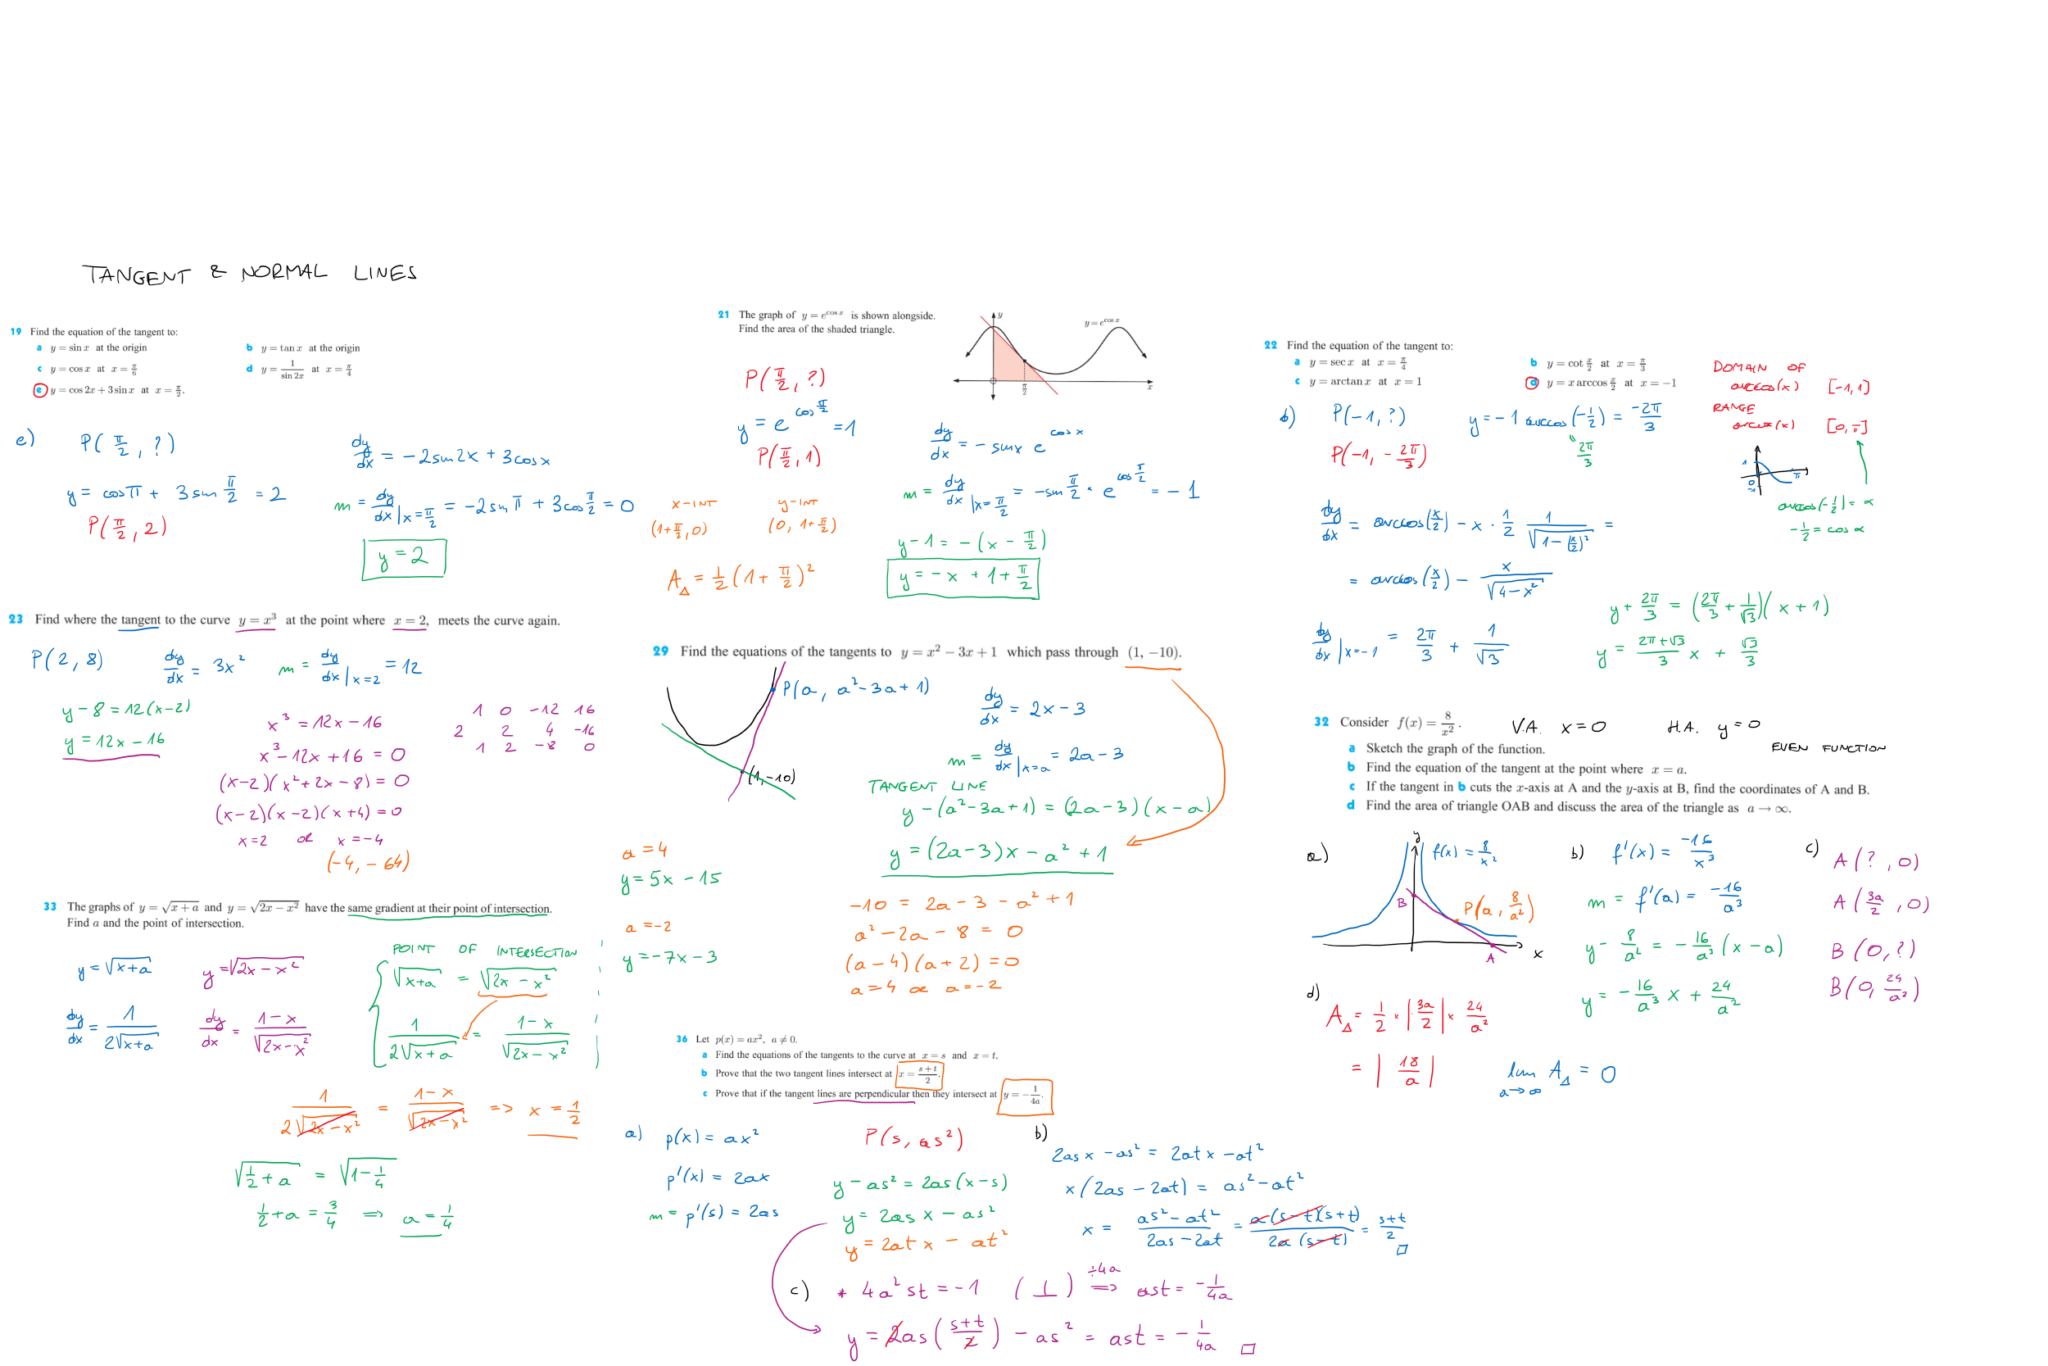 TANGENT & NORMAL LINES
19 Find the equation of the tangent to:
a y = sin x at the origin
b y = tan x at the origin
c y = cos x at x = π/6
d y = 1/(sin 2x) at x = π/4
e y = cos 2x + 3 sin x at x = π/2.
e) P(π/2, ?)
y = cos π + 3 sin π/2 = 2
P(π/2, 2)
dy/dx = -2sin2x + 3cosx
m = dy/dx |x=π/2 = -2sin π + 3cos π/2 = 0
y = 2
21 The graph of y = e^(cos x) is shown alongside.
Find the area of the shaded triangle.
y
y = e^(cos x)
π/2
x
P(π/2, ?)
y = e^(cos π/2) = 1
P(π/2, 1)
dy/dx = - sinx e^(cos x)
m = dy/dx |x=π/2 = -sin π/2 · e^(cos π/2) = -1
x-INT
(1+π/2, 0)
y-INT
(0, 1+π/2)
y-1 = -(x - π/2)
y = -x + 1 + π/2
A△ = 1/2 (1 + π/2)²
22 Find the equation of the tangent to:
a y = sec x at x = π/4
b y = cot x/2 at x = π/3
c y = arctan x at x = 1
d y = x arccos x/2 at x = -1
DOMAIN OF
arccos(x) [-1,1]
RANGE
arccos(x) [0,π]
arccos(-1/2) = α
-1/2 = cos α
d) P(-1, ?)
y = -1 arccos(-1/2) = -2π/3
2π/3
P(-1, -2π/3)
dy/dx = arccos(x/2) - x · 1/2 1/√(1-(x/2)²) =
= arccos(x/2) - x/√(4-x²)
dy/dx |x=-1 = 2π/3 + 1/√3
y + 2π/3 = (2π/3 + 1/√3)(x + 1)
y = (2π+√3)/3 x + √3/3
23 Find where the tangent to the curve y = x³ at the point where x = 2, meets the curve again.
P(2, 8)
dy/dx = 3x²
m = dy/dx |x=2 = 12
y - 8 = 12(x-2)
y = 12x - 16
x³ = 12x - 16
x³ - 12x + 16 = 0
(x-2)(x² + 2x - 8) = 0
(x-2)(x-2)(x+4) = 0
x = 2 or x = -4
(-4, -64)
1 0 -12 16
2 2 4 -16
1 2 -8 0
29 Find the equations of the tangents to y = x² - 3x + 1 which pass through (1, -10).
P(a, a²-3a+1)
(1, -10)
dy/dx = 2x - 3
m = dy/dx |x=a = 2a - 3
TANGENT LINE
y - (a²-3a+1) = (2a-3)(x-a)
y = (2a-3)x - a² + 1
-10 = 2a - 3 - a² + 1
a² - 2a - 8 = 0
(a-4)(a+2) = 0
a = 4 or a = -2
a = 4
y = 5x - 15
a = -2
y = -7x - 3
32 Consider f(x) = 8/x².
V.A. x = 0
H.A. y = 0
EVEN FUNCTION
a Sketch the graph of the function.
b Find the equation of the tangent at the point where x = a.
c If the tangent in b cuts the x-axis at A and the y-axis at B, find the coordinates of A and B.
d Find the area of triangle OAB and discuss the area of the triangle as a → ∞.
a)
y
f(x) = 8/x²
B
P(a, 8/a²)
A
x
b) f'(x) = -16/x³
m = f'(a) = -16/a³
y - 8/a² = -16/a³ (x - a)
y = -16/a³ x + 24/a²
c) A(?, 0)
A(3a/2, 0)
B(0, ?)
B(0, 24/a²)
d) A△ = 1/2 · |3a/2| · 24/a²
= |18/a|
lim a→∞ A△ = 0
33 The graphs of y = √(x+a) and y = √(2x-x²) have the same gradient at their point of intersection.
Find a and the point of intersection.
y = √(x+a)
y = √(2x-x²)
dy/dx = 1/(2√(x+a))
dy/dx = (1-x)/√(2x-x²)
POINT OF INTERSECTION
√(x+a) = √(2x-x²)
1/(2√(x+a)) = (1-x)/√(2x-x²)
1/(2√(2x-x²)) = (1-x)/√(2x-x²) => x = 1/2
√(1/2+a) = √(1-1/4)
1/2 + a = 3/4 => a = 1/4
36 Let p(x) = ax², a ≠ 0.
a Find the equations of the tangents to the curve at x = s and x = t.
b Prove that the two tangent lines intersect at x = (s+t)/2.
c Prove that if the tangent lines are perpendicular then they intersect at y = -1/(4a).
a) p(x) = ax²
p'(x) = 2ax
m = p'(s) = 2as
P(s, as²)
y - as² = 2as(x-s)
y = 2as x - as²
y = 2at x - at²
b)
2as x - as² = 2at x - at²
x(2as - 2at) = as² - at²
x = (as²-at²)/(2as-2at) = a(s-t)(s+t)/(2a(s-t)) = (s+t)/2 □
c) * 4a²st = -1 (⊥) ÷4a => ast = -1/(4a)
y = 2as((s+t)/2) - as² = ast = -1/(4a) □